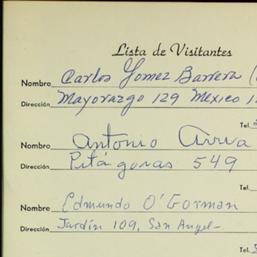 Lista de Visitantes
Nombre Carlos Gomez Barrera (
Dirección Mayorazgo 129 México 1
Tel.
Nombre Antonio Arria
Dirección Pitágoras 549
Tel.
Nombre Edmundo O'Gorman
Dirección Jardín 109, San Angel-
Tel. 5